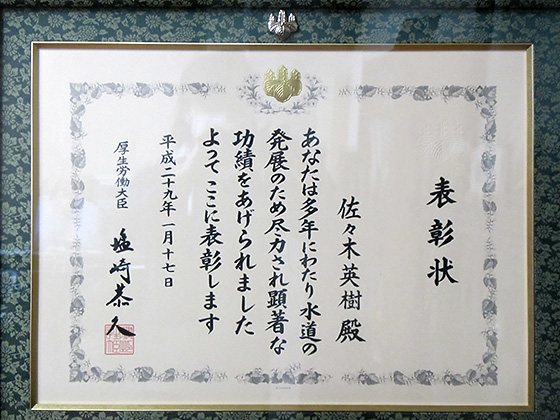 表彰状
佐々木英樹 殿
あなたは多年にわたり水道の
発展のため尽力され顕著な
功績をあげられました
よってここに表彰します
平成二十九年一月十七日
厚生労働大臣 塩崎恭久